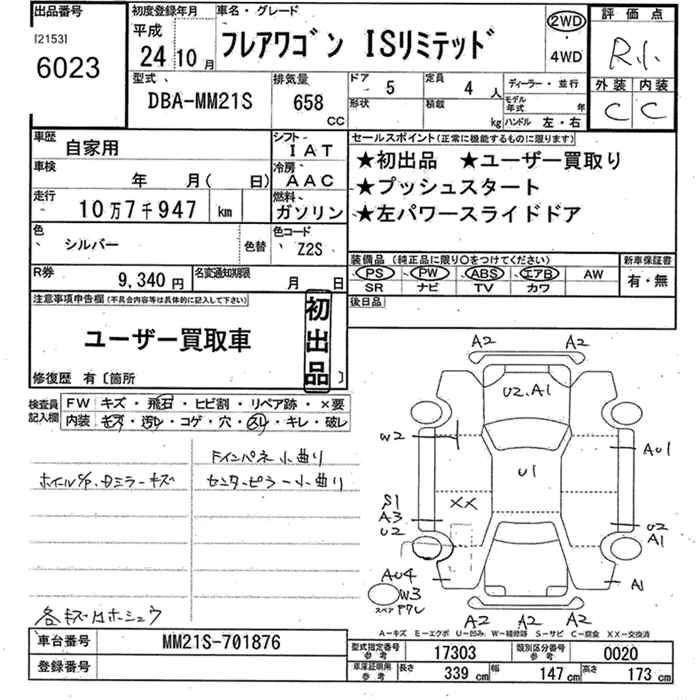 出品番号
[2153]
6023
初度登録年月
平成
24 10 月
車名・グレード
フレアワゴン ISリミテッド
2WD
・
4WD
評価点
R小
外装 内装
C C
型式
DBA-MM21S
排気量
658
cc
ドア 5
定員 4 人
ディーラー・並行
形状
積載 kg
モデル年式 年
ハンドル 左・右
車歴 自家用
シフト IAT
車検 年 月( 日)
冷房 AAC
走行 10万7千947 km
燃料 ガソリン
色 シルバー 色替
色コード Z2S
R券 9,340 円
名変通知期限 月 日
セールスポイント(正常に機能するものに限ります)
★初出品 ★ユーザー買取り
★プッシュスタート
★左パワースライドドア
装備品 (純正品に限り○をつけてください)
PS PW ABS エアB AW
SR ナビ TV カワ
新車保証書
有・無
後日品
注意事項申告欄(不具合内容等は具体的に記入して下さい)
ユーザー買取車
初出品
修復歴 有〔箇所 〕
検査員記入欄
FW キズ・飛石・ヒビ割・リペア跡・×要
内装 キズ・汚レ・コゲ・穴・スレ・キレ・破レ
ドインパネ小曲り
センターピラー小曲り
各キズ
車台番号 MM21S-701876
登録番号
A2 A2
U2.A1
W2
AU1
U1
XX
S1
A3
U2
U2
A1
AU4
W3
スペア
A1
A2 A2
A2
A-キズ E-エクボ U-凹み W-補修跡 S-サビ C-腐食 XX-交換済
型式指定番号参考 17303
類別区分番号参考 0020
車庫証明用参考 長さ 339 cm 幅 147 cm 高さ 173 cm